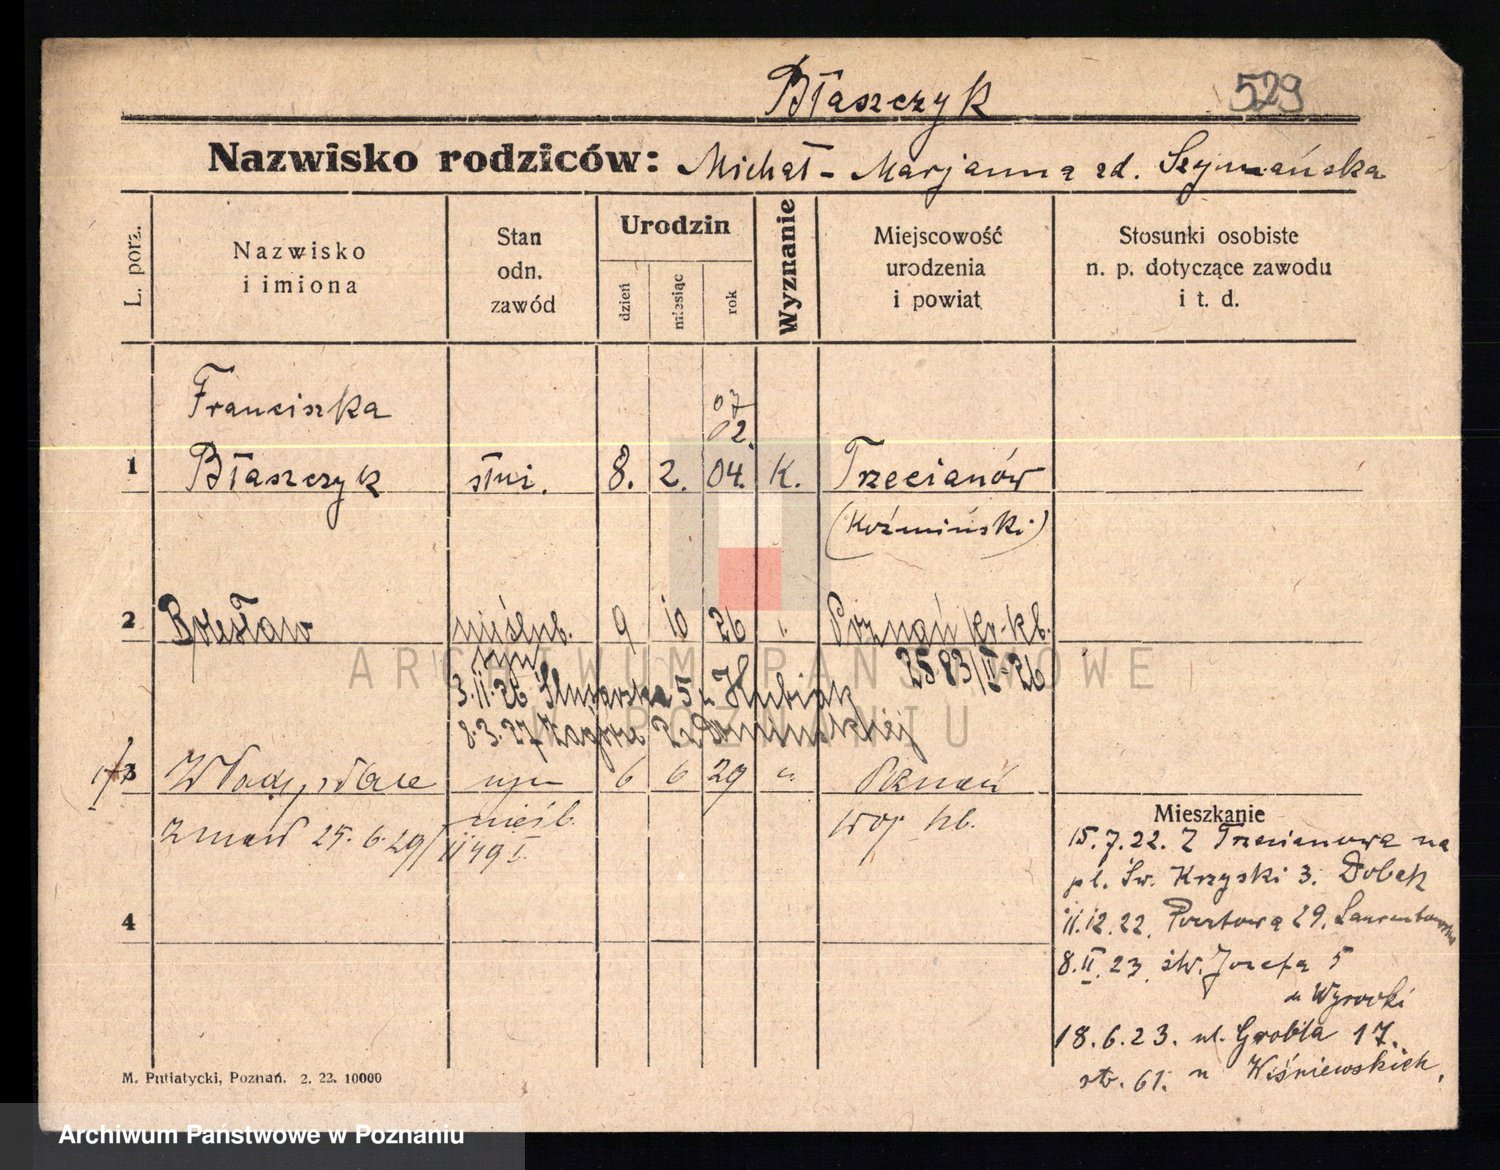 Błaszczyk 529
Nazwisko rodziców: Michał - Marjanna zd. Szymańska
L. porz.
Nazwisko
i imiona
Stan
odn.
zawód
Urodzin
dzień
miesiąc
rok
Wyznanie
Miejscowość
urodzenia
i powiat
Stosunki osobiste
n. p. dotyczące zawodu
i t. d.
Franciszka
07
02.
1 Błaszczyk służ. 8. 2. 04. K. Trzecianów
(Koźmiński)
2 Bolesław nieślub. 9 10 26 Poznań kr. kb.
syn 2583/II-26
3.11.26 Ślusarska 5 u Hubiak
8.3.27 Zagórze 2
3 syn 6 6 29 Poznań
Zmarł 25.6.29 nieśl. woj kb.
1149 I.
4
Mieszkanie
15.7.22. Z Trzecianowa na
pl. Św. Krzyski 3. Dobek
11.12.22. Pocztowa 29.
8.II.23 św. Józefa 5
u Wysocki
18.6.23. ul. Grobla 17.
str. 61. u Wiśniewskich.
M. Putiatycki, Poznań. 2. 22. 10000
ARCHIWUM PAŃSTWOWE
W POZNANIU
Archiwum Państwowe w Poznaniu